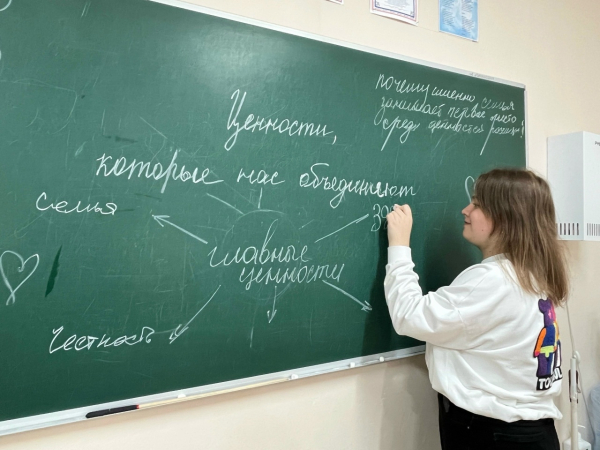 почему именно семья
занимает первое
среди ценностей россиян?
Ценности,
которые нас объединяют
семья
главные
ценности
честность